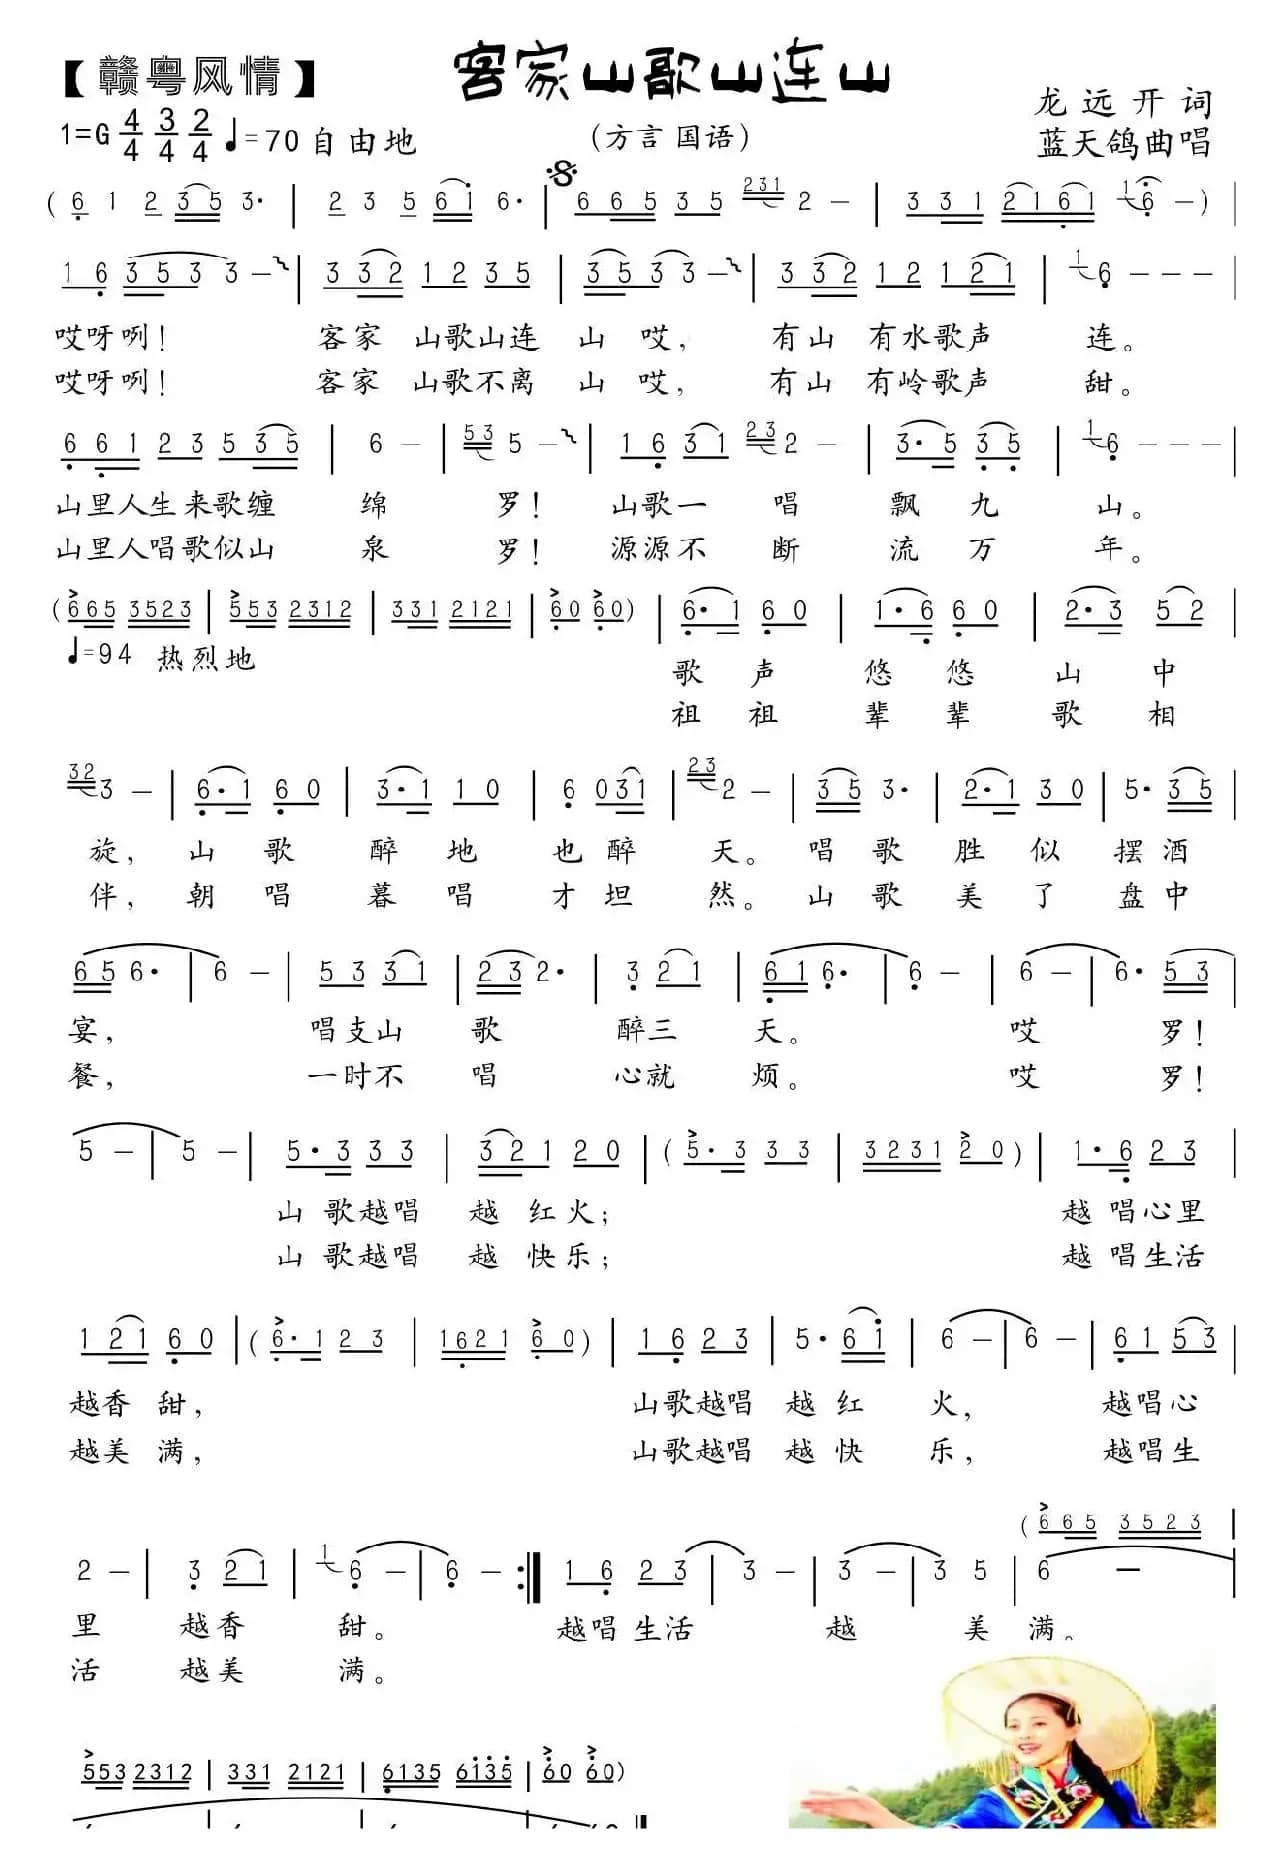 【赣粤风情】
客家山歌山连山
龙远开词
1=G 4/4 3/4 2/4 ♩=70 自由地
（方言 国语）
蓝天鸽曲唱
( 6 1 2 3 5 3· | 2 3 5 6 1 6· | 6 6 5 3 5 231 2 － | 3 3 1 2 1 6 1 1 6 － ) |
1 6 3 5 3 3 － | 3 3 2 1 2 3 5 | 3 5 3 3 － | 3 3 2 1 2 1 2 1 | 1 6 － － － |
哎呀咧！ 客家 山歌山连 山 哎， 有山 有水歌声 连。
哎呀咧！ 客家 山歌不离 山 哎， 有山 有岭歌声 甜。
6 6 1 2 3 5 3 5 | 6 － | 53 5 － | 1 6 3 1 23 2 － | 3· 5 3 5 | 1 6 － － － |
山里人生来歌缠 绵 罗！ 山歌一 唱 飘九 山。
山里人唱歌似山 泉 罗！ 源源不 断 流万 年。
( 6 6 5 3 5 2 3 | 5 5 3 2 3 1 2 | 3 3 1 2 1 2 1 | 6 0 6 0 ) | 6· 1 6 0 | 1· 6 6 0 | 2· 3 5 2 |
♩=94 热烈地
歌 声 悠 悠 山 中
祖 祖 辈 辈 歌 相
32 3 － | 6· 1 6 0 | 3· 1 1 0 | 6 0 3 1 | 23 2 － | 3 5 3· | 2· 1 3 0 | 5· 3 5 |
旋， 山 歌 醉 地 也 醉 天。 唱 歌 胜 似 摆 酒
伴， 朝 唱 暮 唱 才 坦 然。 山 歌 美 了 盘 中
6 5 6· | 6 － | 5 3 3 1 | 2 3 2· | 3 2 1 | 6 1 6· | 6 － | 6 － | 6· 5 3 |
宴， 唱支山 歌 醉三 天。 哎 罗！
餐， 一时不 唱 心就 烦。 哎 罗！
5 － | 5 － | 5· 3 3 3 | 3 2 1 2 0 | ( 5· 3 3 3 | 3 2 3 1 2 0 ) | 1· 6 2 3 |
山 歌越唱 越 红火； 越 唱心里
山 歌越唱 越 快乐； 越 唱生活
1 2 1 6 0 | ( 6· 1 2 3 | 1 6 2 1 6 0 ) | 1 6 2 3 | 5· 6 1 | 6 － | 6 － | 6 1 5 3 |
越香 甜， 山歌越唱 越 红 火， 越唱心
越美 满， 山歌越唱 越 快 乐， 越唱生
( 6 6 5 3 5 2 3 |
2 － | 3 2 1 | 1 6 － | 6 － :‖ 1 6 2 3 | 3 － | 3 － | 3 5 | 6 － |
里 越香 甜。 越唱 生活 越 美 满。
活 越美 满。
5 5 3 2 3 1 2 | 3 3 1 2 1 2 1 | 6 1 3 5 6 1 3 5 | 6 0 6 0 )